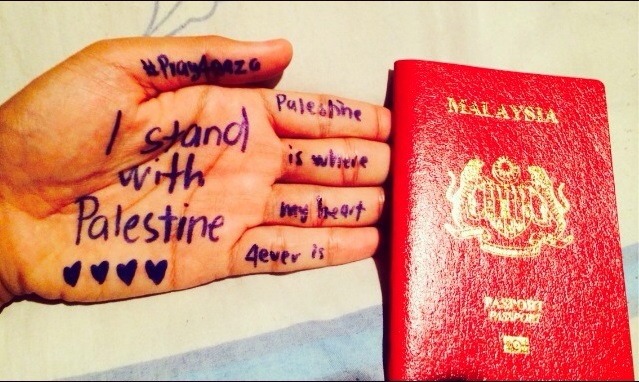 #Pray4Gaza
I stand
with
Palestine
Palestine
is where
my heart
4ever is
MALAYSIA
PASPORT
PASSPORT